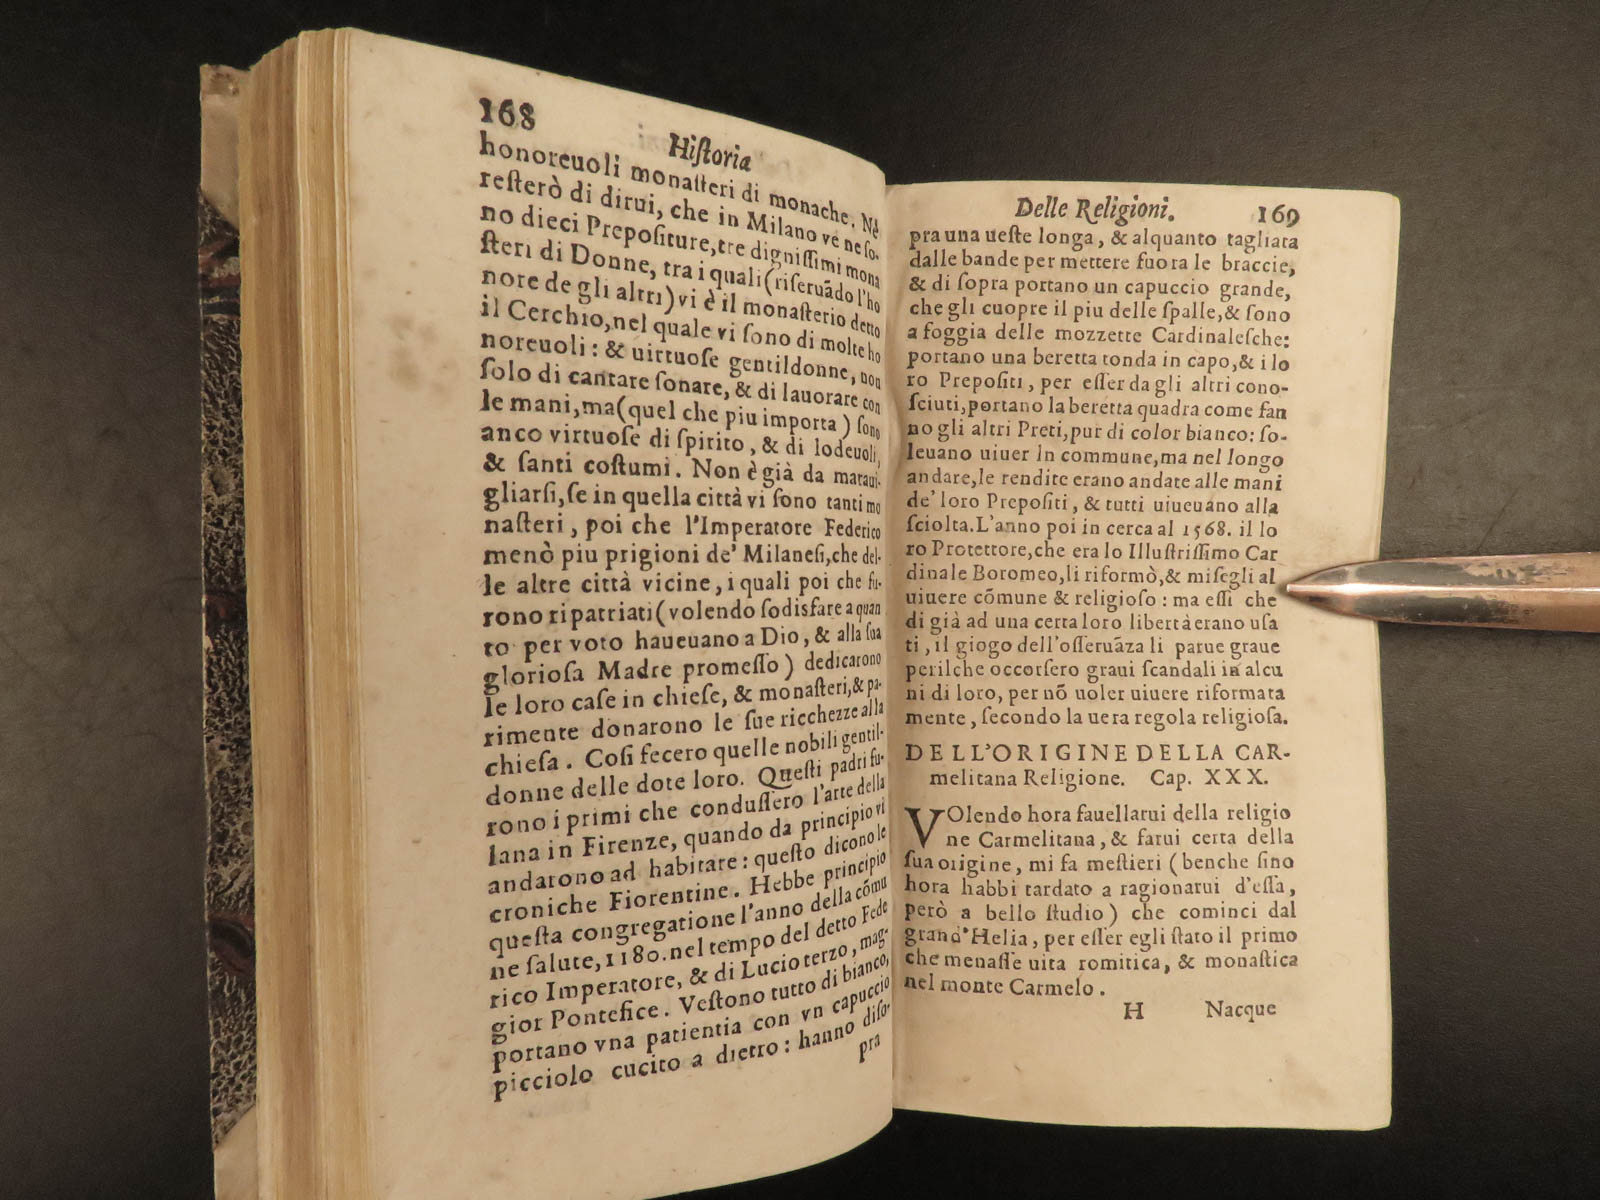 168
Hiſtoria
honoreuoli monaſteri di monache. Nè
reſterò di dirui, che in Milano ve ne ſo-
no dieci Prepoſiture, tre digniſſimi mona
ſteri di Donne, tra i quali (riſeruãdo l'ho
nore de gli altri) vi è il monaſterio detto
il Cerchio, nel quale vi ſono di molte ho
noreuoli: & uirtuoſe gentildonne, non
ſolo di cantare ſonare, & di lauorare con
le mani, ma (quel che piu importa) ſono
anco virtuoſe di ſpirito, & di lodeuoli,
& ſanti coſtumi. Non è già da maraui-
gliarſi, ſe in quella città vi ſono tanti mo
naſteri, poi che l'Imperatore Federico
menò piu prigioni de' Milaneſi, che del-
le altre città vicine, i quali poi che fu-
rono ripatriati (volendo ſodisfare a quan
to per voto haueuano a Dio, & alla ſua
glorioſa Madre promeſſo) dedicarono
le loro caſe in chieſe, & monaſteri, & pa-
rimente donarono le ſue ricchezze alla
chieſa. Coſi fecero quelle nobili gentil-
donne delle dote loro. Queſti padri fu-
rono i primi che conduſſero l'arte della
lana in Firenze, quando da principio vi
andarono ad habitare: queſto dicono le
croniche Fiorentine. Hebbe principio
queſta congregatione l'anno della cõmu
ne ſalute, 1180. nel tempo del detto Fede
rico Imperatore, & di Lucio terzo, mag-
gior Pontefice. Veſtono tutto di bianco,
portano vna patientia con vn capuccio
picciolo cucito a dietro: hanno diſo-
pra
Delle Religioni. 169
pra una ueſte longa, & alquanto tagliata
dalle bande per mettere fuora le braccie,
& di ſopra portano un capuccio grande,
che gli cuopre il piu delle ſpalle, & ſono
a foggia delle mozzette Cardinaleſche:
portano una beretta tonda in capo, & i lo
ro Prepoſiti, per eſſer da gli altri cono-
ſciuti, portano la beretta quadra come fan
no gli altri Preti, pur di color bianco: ſo-
leuano uiuer in commune, ma nel longo
andare, le rendite erano andate alle mani
de' loro Prepoſiti, & tutti uiueuano alla
ſciolta. L'anno poi in cerca al 1568. il lo
ro Protettore, che era lo Illuſtriſſimo Car
dinale Boromeo, li riformò, & miſegli al
uiuere cõmune & religioſo: ma eſſi che
di già ad una certa loro libertà erano uſa
ti, il giogo dell'oſſeruãza li parue graue
perilche occorſero graui ſcandali in alcu
ni di loro, per nõ uoler uiuere riformata
mente, ſecondo la uera regola religioſa.
DELL'ORIGINE DELLA CAR-
melitana Religione. Cap. XXX.
VOlendo hora fauellarui della religio
ne Carmelitana, & farui certa della
ſua origine, mi fa meſtieri (benche ſino
hora habbi tardato a ragionarui d'eſſa,
però a bello ſtudio) che cominci dal
grand'Helia, per eſſer egli ſtato il primo
che menaſſe uita romitica, & monaſtica
nel monte Carmelo.
H Nacque